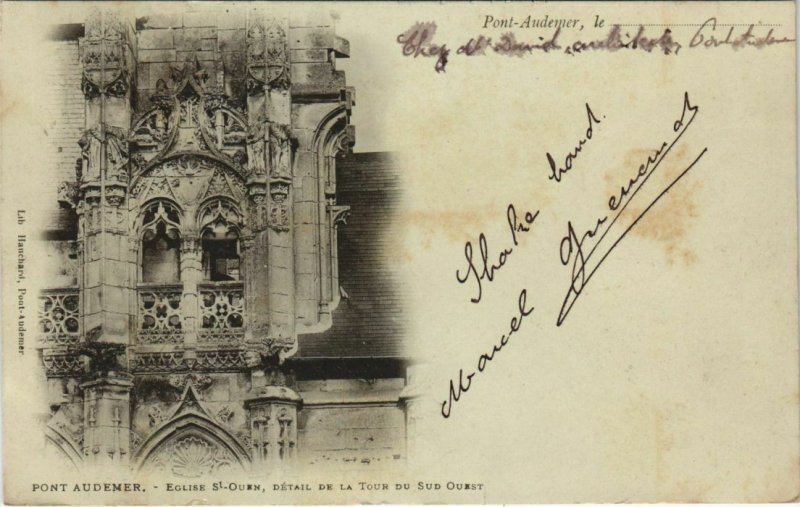 Pont-Audemer, le
Chez Mr David, architecte, Pontaudemer
Shake hand.
Marcel Quenemat
Lib Hauchard, Pont-Audemer
PONT AUDEMER. - EGLISE St-OUEN, DÉTAIL DE LA TOUR DU SUD OUEST